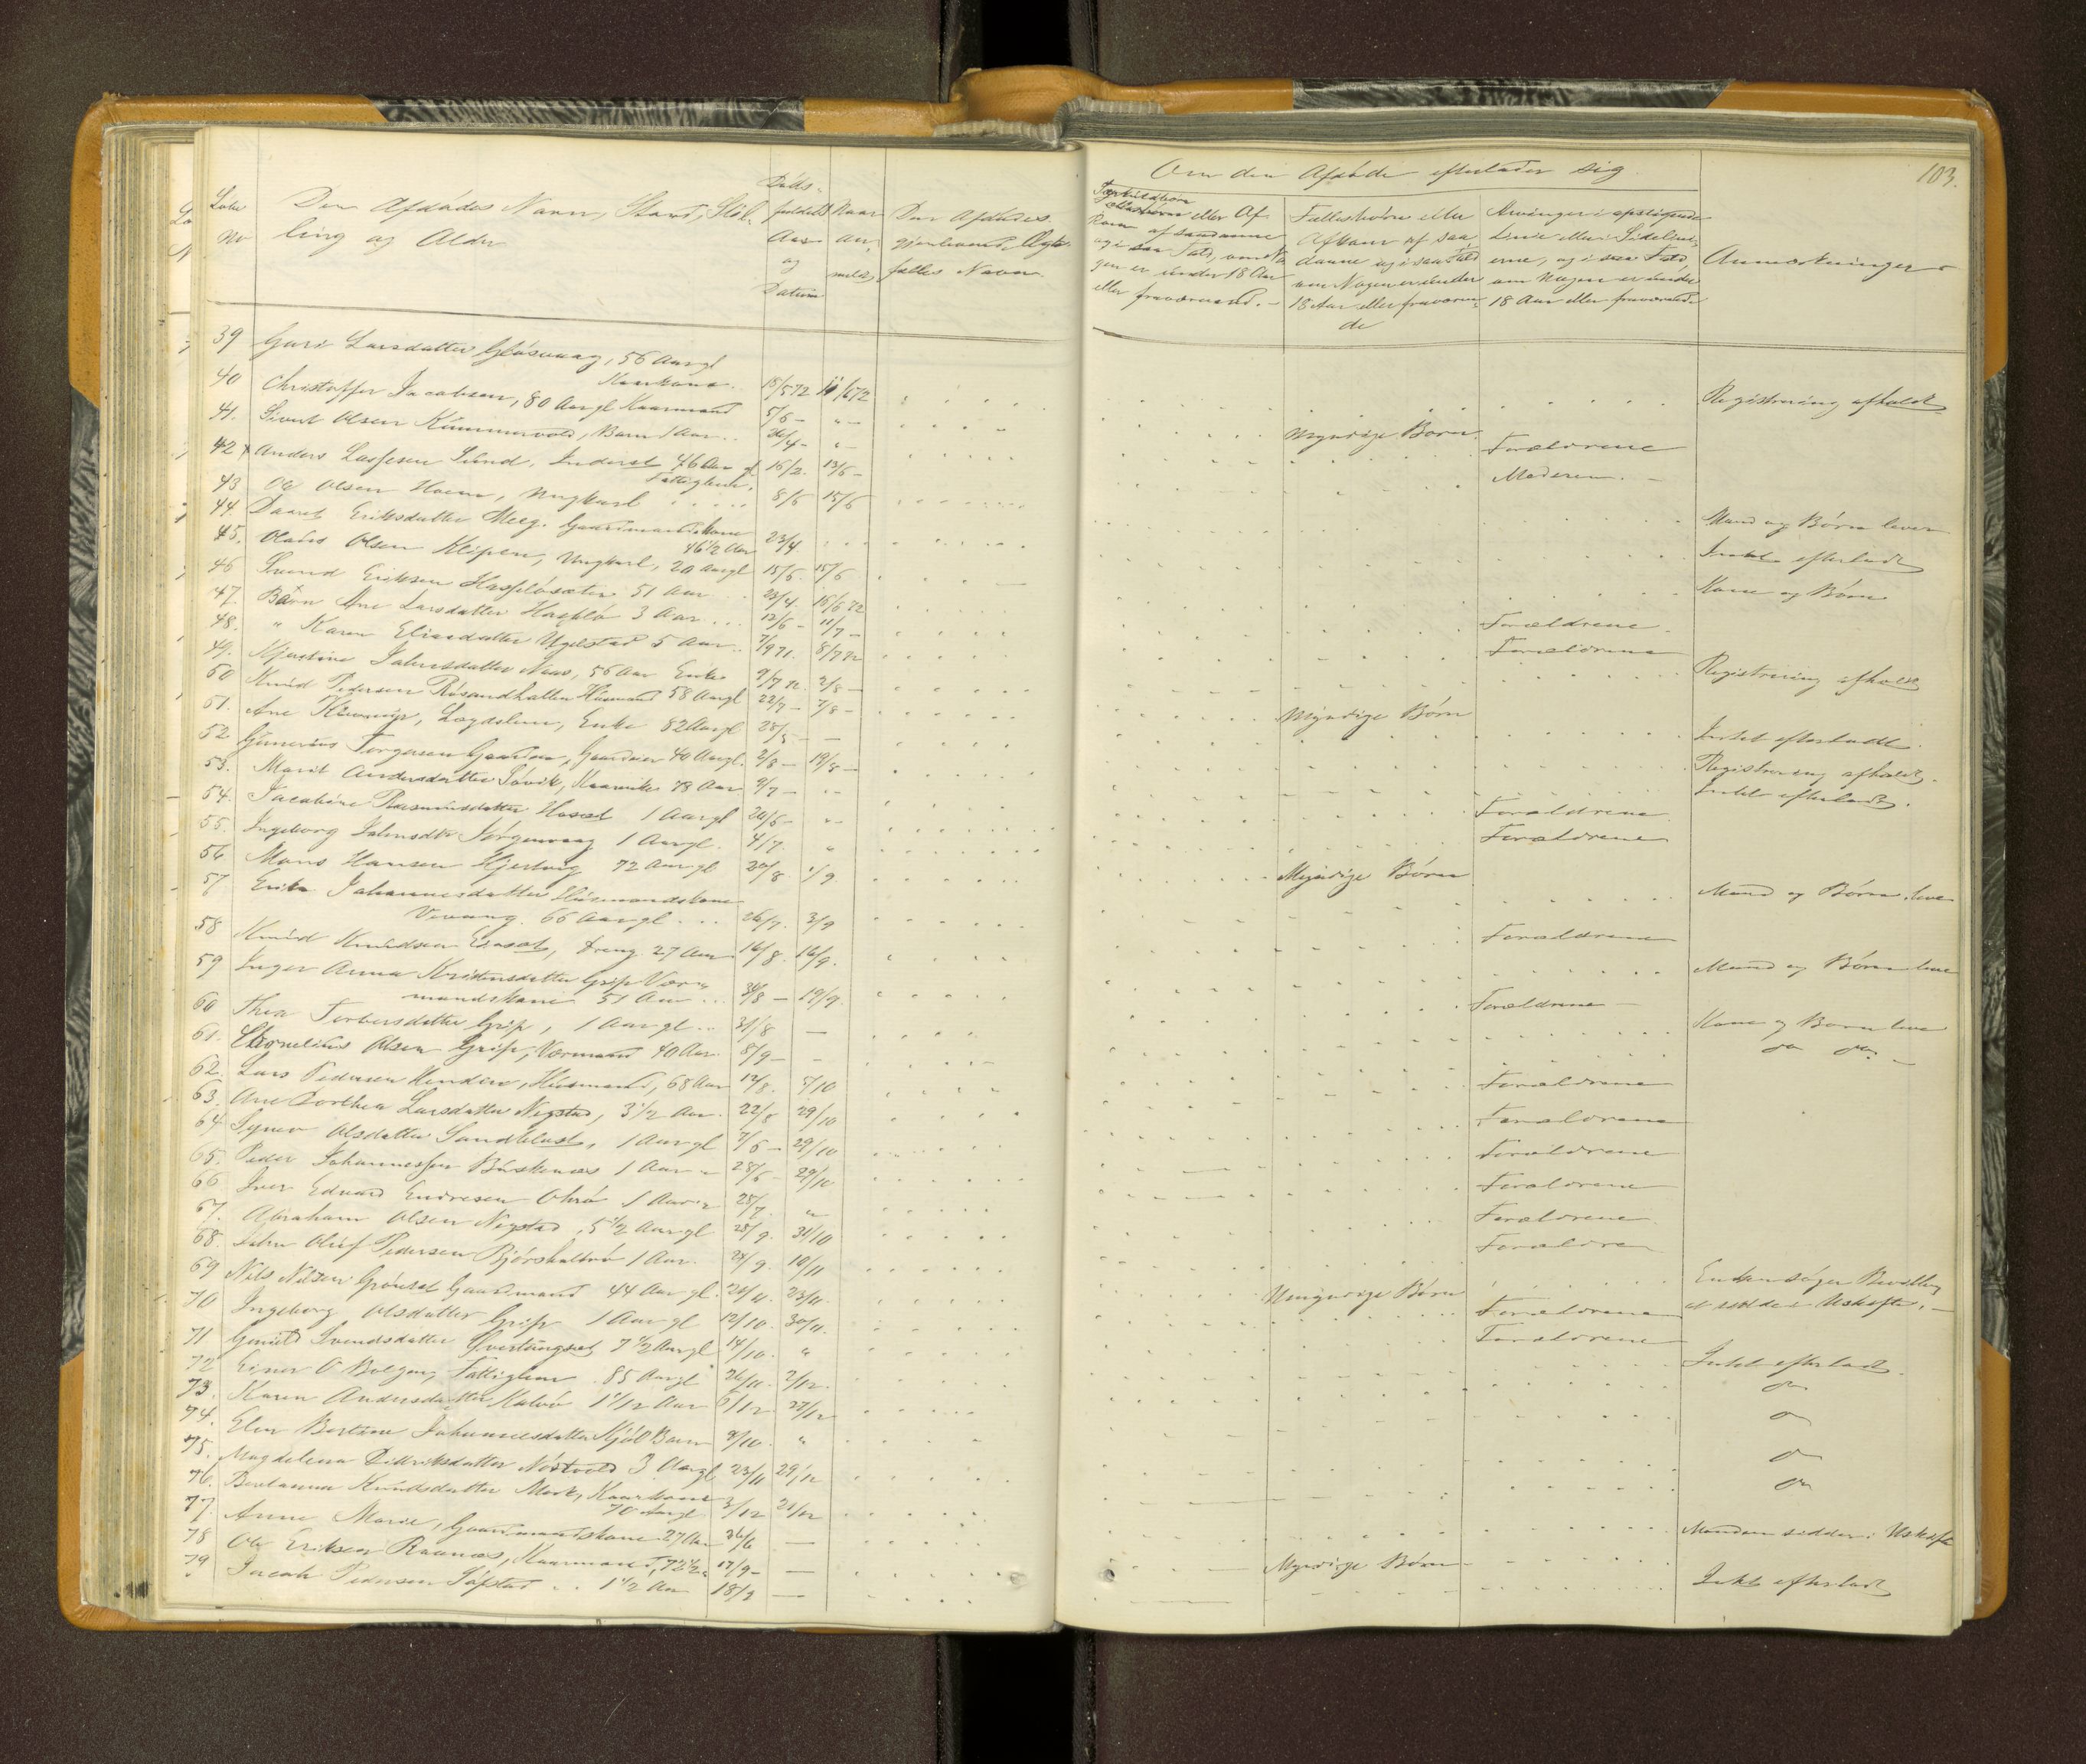 103.
Løbe No
Den Afdødes Navn, Stand, Stil-
ling og Alder
Døds-
faldets
Aar
og
Datum
Naar
an-
meldt
Den Afdødes
gjenlevende Ægte-
fælles Navn.
Om den Afdøde efterlader sig
Særkuldbørn
eller Af
kom af saadanne
og i saa Fald, om No
gen er under 18 Aar
eller fraværend. -
Fællesbørn eller
Afkom af saa
danne og i saa Fald
om Nogen er under
18 Aar eller fraværen-
de
Arvinger i opstigende
Linie eller i Sidelini-
erne, og i saa Fald,
om Nogen er under
18 Aar eller fraværende
Anmærkninger
39 Guri Larsdatter Gløsvaag, 56 Aar gl
Kaarkone. 15/5 72 11/6 72 Registrering afholdt
40 Christoffer Jacobsen, 80 Aar gl Kaarmand 5/6 - " - Myndige Børn
41. Sivert Olsen Kummervold, Barn 1 Aar .. 26/4 - " - Forældrene
42 x Anders Lassesen Sund, Inderst 46 Aar gl
Fattiglem. 16/2. 13/6 - Moderen. -
43 Ole Olsen Hoem, Ungkarl 8/5 15/6
44. Daaret Eriksdatter Meeg. Gaardmandskone
46 1/2 Aar 23/4 Mand og Børn lever
45. Olaus Olsen Klipen, Ungkarl, 20 Aar gl 15/5. 15/6 Intet efterladt
46 Svend Eriksen Hasfløsæter 51 Aar 23/4. 16/6 72 Kone og Børn
47. Barn Ane Larsdatter Hasflø 3 Aar ... 12/6 - 11/7 - Forældrene.
48. " Karen Eliasdatter Ugelstad 5 Aar .. 7/9 71. 8/7 72 Forældrene
49. Kjerstine Johnsdatter Naas, 56 Aar Enke 9/7 72. 2/8 - Registrering afholdt
50 Knud Pedersen Røsandhallen Husmand 58 Aar gl 22/7 - 7/8 - Myndige Børn
51. Ane , Lægdslem, Enke 82 Aar gl 28/5 - - Intet efterladt.
52 Gunerius Torgersen Gaarden, Gaardeier 40 Aar gl. 2/8 - 19/8 - Registrering afholdt.
53. Marit Andersdatter Søvik, Kaarenke 78 Aar 9/7 - " - Intet efterladt.
54. Jacobine Rasmusdatter Hoset 1 Aar gl 20/6 - " - Forældrene
55. Ingeborg Johnsdtr Jørgenvaag 1 Aar gl. 4/7. " Forældrene
56. Mons Hansen Kjerlvig 72 Aar gl 20/8 1/9. Myndige Børn
57 Erika Johannesdatter Husmandskone
Vevang. 66 Aar gl ... 26/7. 3/9 Mand og Børn leve
58 Knud Knudsen , dreng 27 Aar 16/8. 16/9. Forældrene
59 Inger Anna Kristensdatter Grip Vær-
mandskone 51 Aar ... 30/8 - 19/9. Mand og Børn leve
60 Thea Torbersdatter Grip, 1 Aar gl ... 31/8 - Forældrene -
61. Cornelius Olsen Grip, Værmand 40 Aar. 8/9 - - Kone og Børn leve
62. Lars Pedersen Henden, Husmand, 68 Aar 12/8. 5/10 do do. -
63. Ane Dorthea Larsdatter Nygstad, 3 1/2 Aar. 22/8 29/10 Forældrene
64 Synev Olsdatter Sandblust, 1 Aar gl 7/6 - 29/10 Forældrene
65. Peder Johannessen Buskenæs 1 Aar " 28/6 - 29/10 Forældrene
66 Iver Edvard Endresen Ohrø 1 Aar " 25/7. " Forældrene
67. Abraham Olsen Nygstad, 5 1/2 Aar gl 28/9. 30/10 Forældrene
68. John Oluf Pedersen Bjørshalterø 1 Aar. 24/9. 10/11 Forældre
69 Nils Nilsen Grønset Gaardmand 44 Aar gl. 20/11. 23/11. Umyndige Børn Enken søger Bevilling
at sidde i Uskifte. -
70 Ingeborg Olsdatter Grip 1 Aar gl 12/10. 30/11. Forældrene
71 Gunild Svendsdatter Øvertungset 7 1/2 Aar gl 14/10. " Forældrene
72 Einer O Bolgen, Fattiglem. 85 Aar gl 26/11. 2/12. Intet efterladt.
73. Karen Andersdatter Kalvø 1 1/12 Aar 5/12 27/12 do
74. Elen Bertine Johannesdatter Kjøl Barn 9/10. " do
75. Magdelena Didriksdatter Nøstvold 3 Aar gl 23/11 29/12 do
76. Beretanna Knudsdatter Mork, Kaarkone
70 Aar gl 3/12 21/12 do
77. Anne Marie, Gaardmandskone 27 Aar 26/6 - Manden sidder i Uskifte
78 Ole Eriksen Raanæs, Kaarmand, 72 1/2 " 17/9 - - Myndige Børn
79 Jacob Pedersen Søfstad .. 1 1/2 Aar 18/9 - Intet efterladt